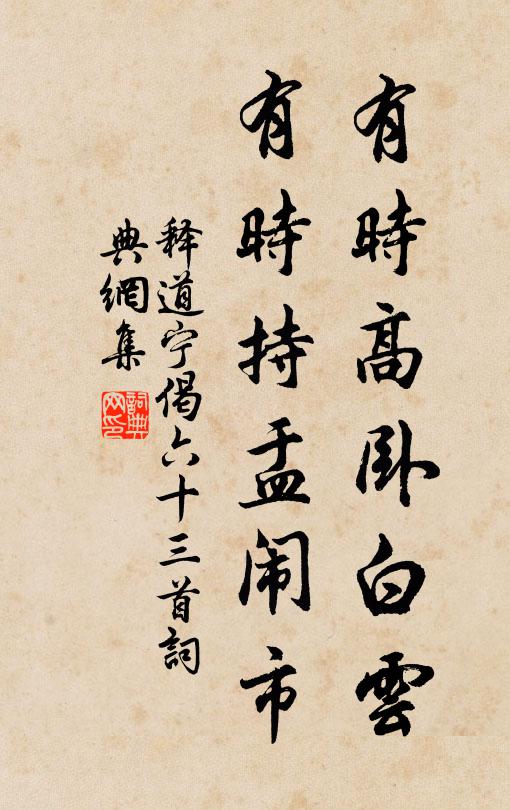 有時高卧白雲
有時持盂闹市
释道宁偈六十三首詞
典網集
詞典网印